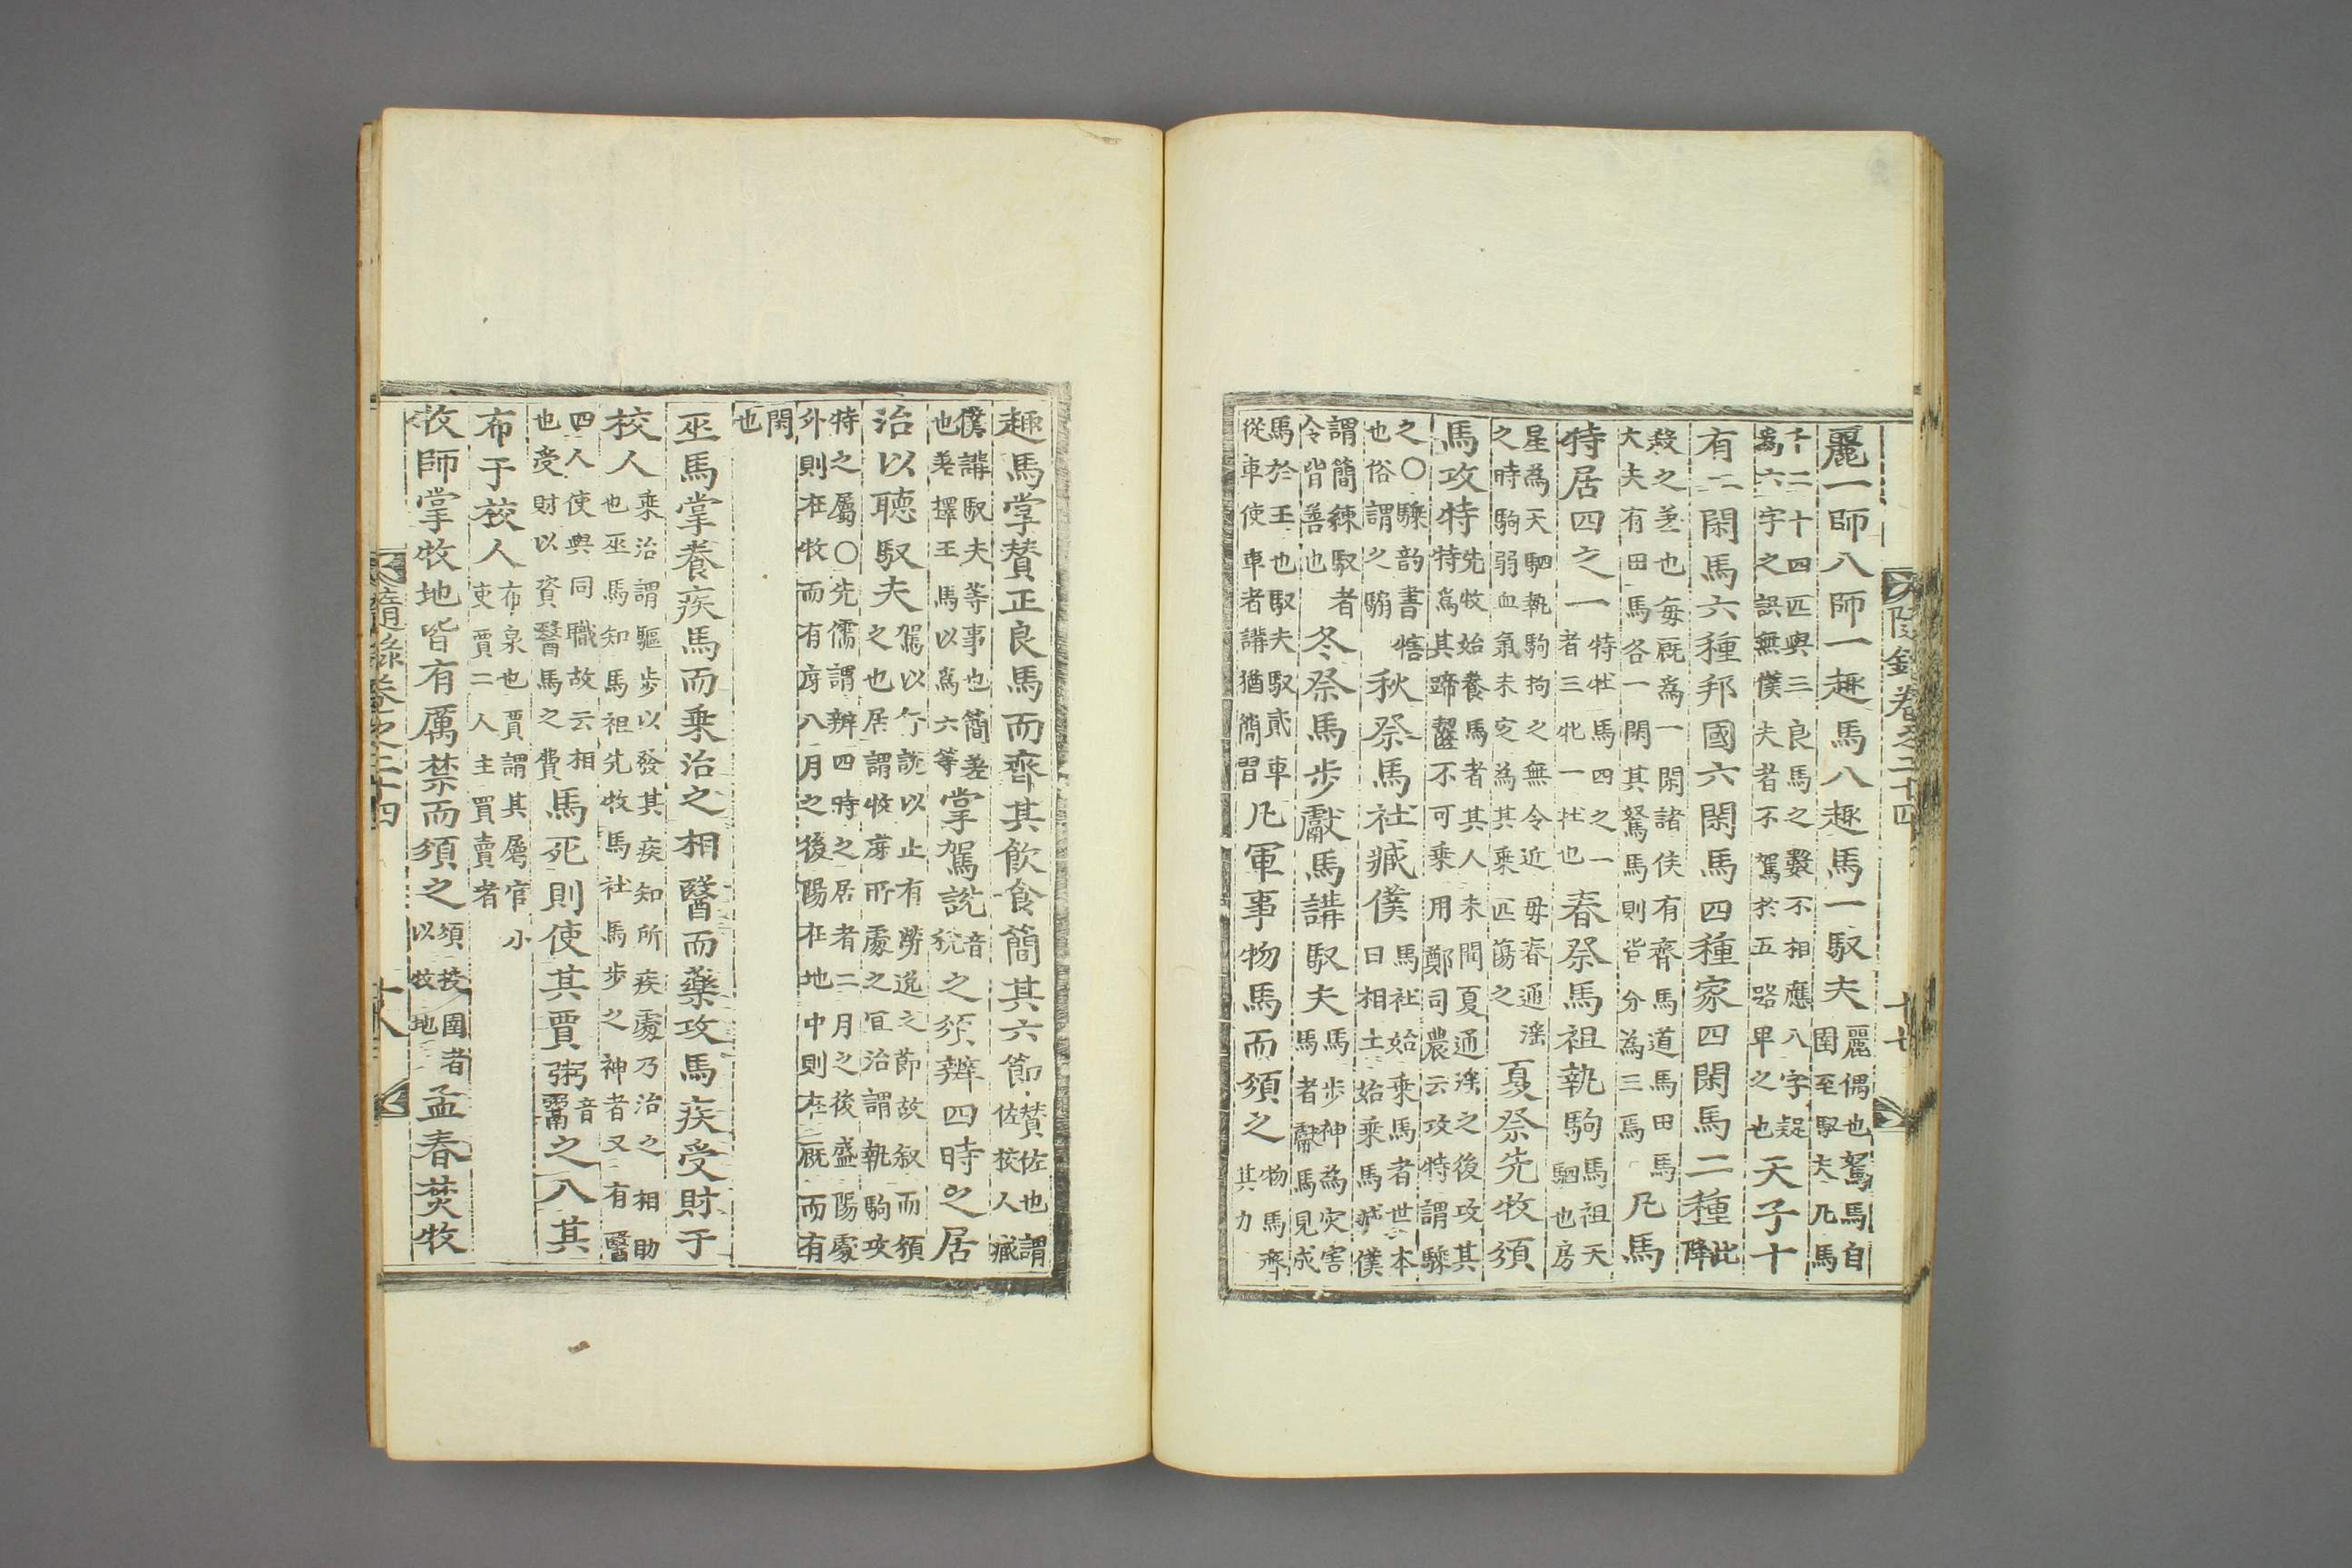 隨錄卷之二十四 十七
麗一師八師一趣馬八趣馬一馭夫麗偶也駑馬自圉至馭夫凡馬
千二十四匹與三良馬之數不相應八字疑爲六字之誤無僕夫者不駕於五路卑之也天子十
有二閑馬六種邦國六閑馬四種家四閑馬二種此降
殺之差也每厩爲一閑諸侯有齊馬道馬田馬大夫有田馬各一閑其駑馬則皆分為三焉凡馬
特居四之一特牡馬四之一者三牝一牡也春祭馬祖執駒馬祖天駟也房
星為天駟執駒拘之無令近母春通淫之時駒弱血氣未定為其乘匹蕩之夏祭先牧頒
馬攻特先牧始養馬者其人未聞夏通淫之後攻其特爲其蹄齧不可乘用鄭司農云攻特謂騬
之〇騬韵書犗也俗謂之騸秋祭馬社臧僕馬社始乘馬者世本曰相土始乘馬臧僕
謂簡練馭者令皆善也冬祭馬步獻馬講馭夫馬步神為灾害馬者獻馬見成
馬於王也馭夫馭貳車從車使車者講猶簡習凡軍事物馬而頒之物馬齊其力
趣馬掌賛正良馬而齊其飮食簡其六節賛佐也謂佐校人臧
僕講馭夫等事也簡差也差擇王馬以爲六等掌駕說音稅之頒辨四時之居
治以聽馭夫駕以行說以止有勞逸之節故叙而頒之也居謂牧庌所處之宜治謂執駒攻
特之屬〇先儒謂辨四時之居者二月之後盛陽處外則在牧而有庌八月之後陽在地中則在厩而有
閑也
巫馬掌養疾馬而乘治之相醫而藥攻馬疾受財于
校人乘治謂驅步以發其疾知所疾處乃治之相助也巫馬知馬祖先牧馬社馬步之神者又有醫
四人使與同職故云相也受財以資醫馬之費馬死則使其賈粥音鬻之入其
布于校人布泉也賈謂其屬官小吏賈二人主買賣者
牧師掌牧地皆有厲禁而頒之頒授圉者以牧地孟春焚牧
隨錄卷之二十四 十八